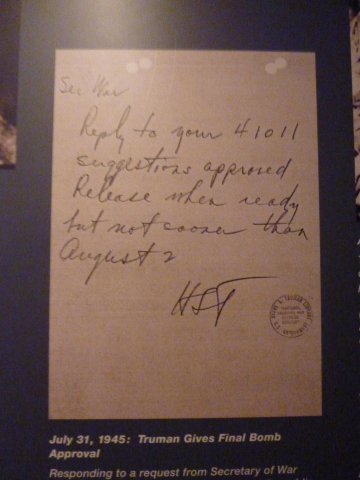 Sec War
Reply to your 41011
suggestions approved
Release when ready
but not sooner than
August 2
HST
July 31, 1945: Truman Gives Final Bomb
Approval
Responding to a request from Secretary of War